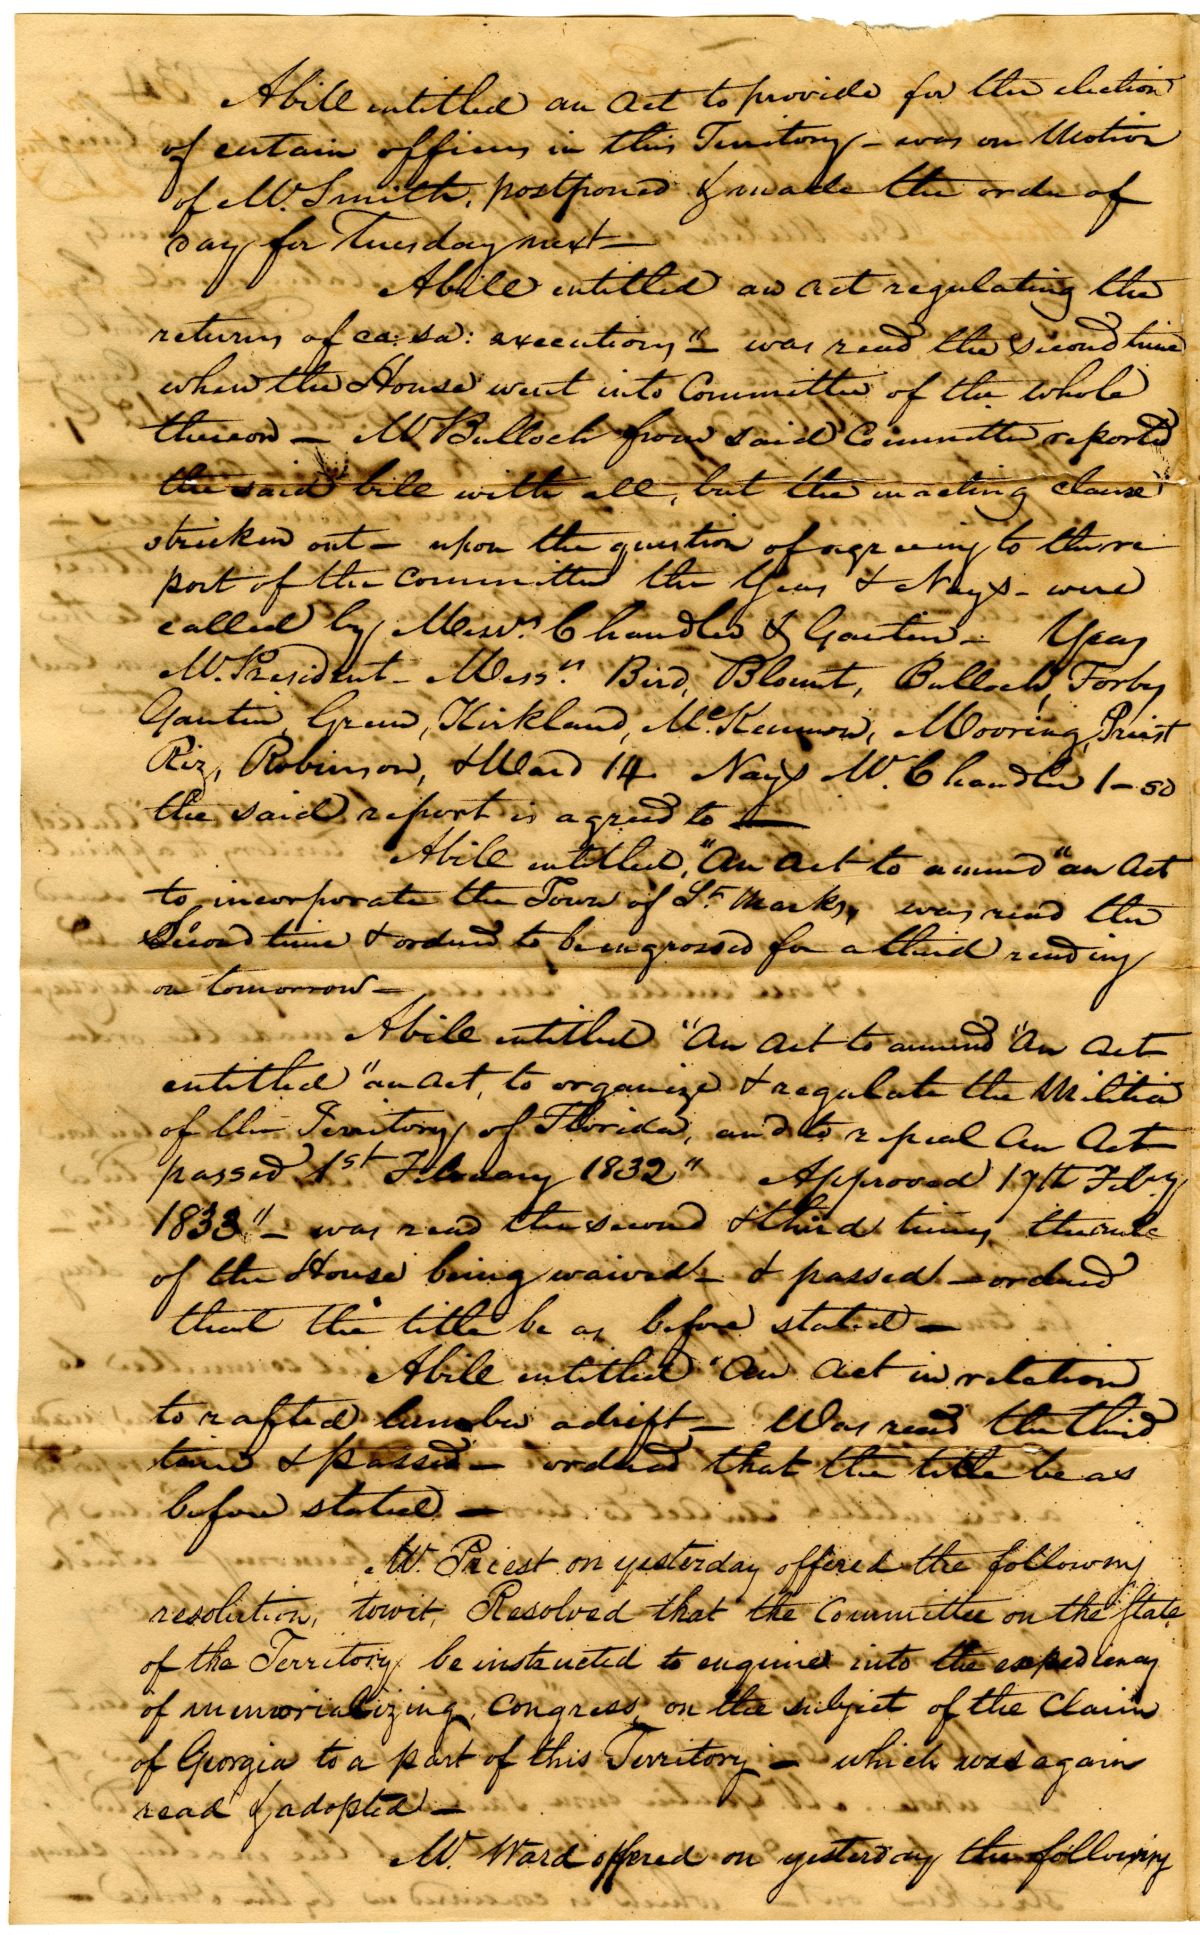 A bill entitled an act to provide for the election
of certain officers in this Territory – was on Motion
of Mr. Smith, postponed & made the order of
day for Tuesday next –
A bill entitled an act regulating the
returns of ca: sa: executions" – was read the second time
when the House went into Committee of the whole
thereon – Mr Bulloch from said Committee reported
the said bill with all, but the enacting clause
stricken out – upon the question of agreeing to the re
port of the Committee the Yeas & Nays – were
called by Messrs. Chandler & Gautier – Yeas
Mr. President – Messrs. Bird, Blount, Bulloch, Forbes
Gautier, Green, Kirkland, McKinnon, Mooring, Priest
Riz, Robinson, & Ward 14 Nays Mr. Chandler 1 – so
the said report is agreed to –
A bill entitled, "An Act to amend "an Act
to incorporate the Town of St. Marks, was read the
Second time & ordered to be engrossed for a third reading
on tomorrow –
A bill entitled "An Act to amend "An Act
entitled "an act, to organize & regulate the Militia
of the Territory of Florida, and to repeal An Act
passed 1st February 1832" Approved 17th Feby
1833" – was read the second & third times, the rule
of the House being waived – & passed – ordered
that the title be as before stated –
A bill entitled "An Act in relation
to rafted lumber adrift – Was read the third
time & passed – ordered that the title be as
before stated –
Mr. Priest on yesterday offered the following
resolution, towit, Resolved that the Committee on the State
of the Territory be instructed to enquire into the expediency
of memorializing, Congress, on the subject of the Claim
of Georgia to a part of this Territory – which was again
read & adopted –
Mr. Ward offered on yesterday the following